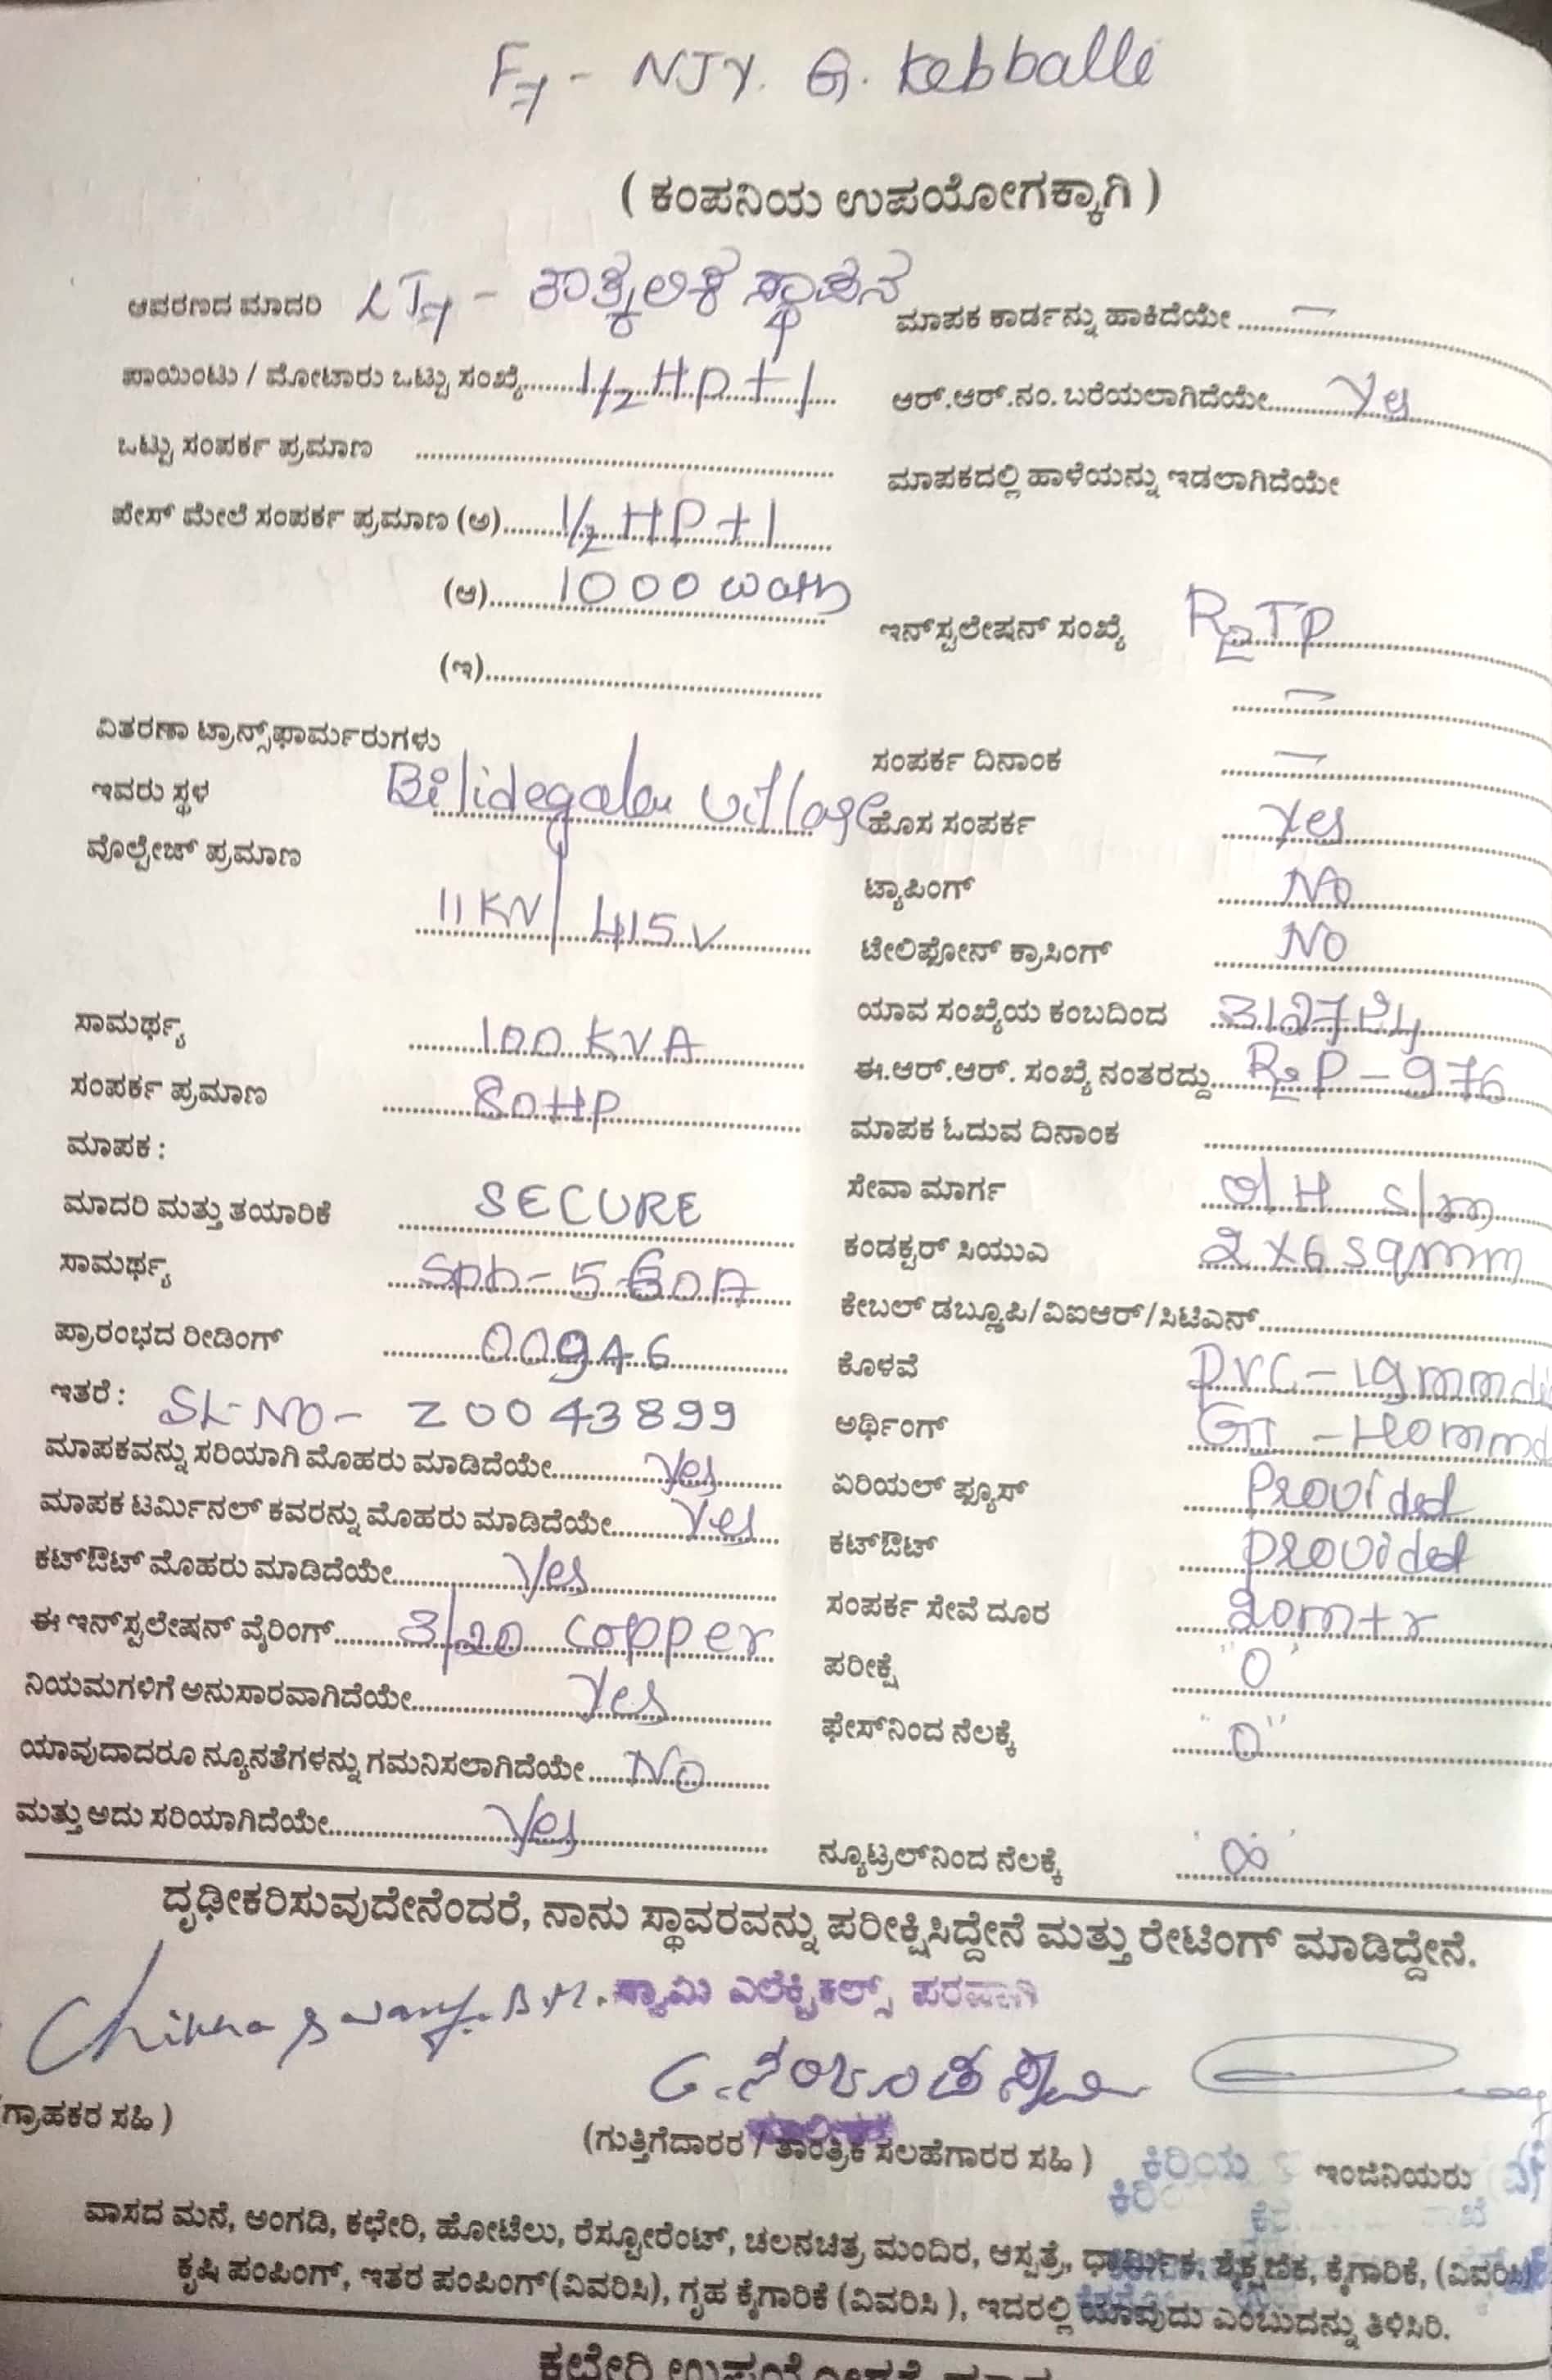 F7 - NJY. G. Kebballi
( ಕಂಪನಿಯ ಉಪಯೋಗಕ್ಕಾಗಿ )
ಆವರಣದ ಮಾದರಿ LT7 - ತಾತ್ಕಲಿಕ ಸ್ಥಾಪನ
ಪಾಯಿಂಟು / ಮೋಟಾರು ಒಟ್ಟು ಸಂಖ್ಯೆ........1/2 HP + 1
ಒಟ್ಟು ಸಂಪರ್ಕ ಪ್ರಮಾಣ ........
ಪೇಸ್ ಮೇಲೆ ಸಂಪರ್ಕ ಪ್ರಮಾಣ (ಅ)........1/2 HP + 1
(ಆ)........1000 watts
(ಇ)........
ವಿತರಣಾ ಟ್ರಾನ್ಸ್‌ಫಾರ್ಮರುಗಳು
ಇವರು ಸ್ಥಳ Bilidegalu village
ವೊಲ್ಟೇಜ್ ಪ್ರಮಾಣ
11KV / 415V
ಸಾಮರ್ಥ್ಯ 100 KVA
ಸಂಪರ್ಕ ಪ್ರಮಾಣ 80HP
ಮಾಪಕ :
ಮಾದರಿ ಮತ್ತು ತಯಾರಿಕೆ SECURE
ಸಾಮರ್ಥ್ಯ
ಪ್ರಾರಂಭದ ರೀಡಿಂಗ್ 00946
ಇತರೆ : SL-NO- Z0043899
ಮಾಪಕವನ್ನು ಸರಿಯಾಗಿ ಮೊಹರು ಮಾಡಿದೆಯೇ........yes
ಮಾಪಕ ಟರ್ಮಿನಲ್ ಕವರನ್ನು ಮೊಹರು ಮಾಡಿದೆಯೇ........Yes
ಕಟ್‌ಔಟ್ ಮೊಹರು ಮಾಡಿದೆಯೇ........Yes
ಈ ಇನ್‌ಸ್ಟಲೇಷನ್ ವೈರಿಂಗ್........3/20 copper
ನಿಯಮಗಳಿಗೆ ಅನುಸಾರವಾಗಿದೆಯೇ........Yes
ಯಾವುದಾದರೂ ನ್ಯೂನತೆಗಳನ್ನು ಗಮನಿಸಲಾಗಿದೆಯೇ........No
ಮತ್ತು ಅದು ಸರಿಯಾಗಿದೆಯೇ........Yes
ಮಾಪಕ ಕಾರ್ಡನ್ನು ಹಾಕಿದೆಯೇ ........ —
ಆರ್.ಆರ್.ನಂ. ಬರೆಯಲಾಗಿದೆಯೇ........Yes
ಮಾಪಕದಲ್ಲಿ ಹಾಳೆಯನ್ನು ಇಡಲಾಗಿದೆಯೇ
ಇನ್‌ಸ್ಟಲೇಷನ್ ಸಂಖ್ಯೆ R2TP
—
ಸಂಪರ್ಕ ದಿನಾಂಕ —
ಹೊಸ ಸಂಪರ್ಕ Yes
ಟ್ಯಾಪಿಂಗ್ No
ಟೇಲಿಫೋನ್ ಕ್ರಾಸಿಂಗ್ NO
ಯಾವ ಸಂಖ್ಯೆಯ ಕಂಬದಿಂದ
ಈ.ಆರ್.ಆರ್. ಸಂಖ್ಯೆ ನಂತರದ್ದು........R2P - 976
ಮಾಪಕ ಓದುವ ದಿನಾಂಕ ........
ಸೇವಾ ಮಾರ್ಗ O/H S/m
ಕಂಡಕ್ಟರ್ ಸಿಯುಎ 2X6 sqmm
ಕೇಬಲ್ ಡಬ್ಲೂಪಿ/ವಿಐಆರ್/ಸಿಟಿಎನ್........
ಕೊಳವೆ PVC - 19mmdi
ಅರ್ಥಿಂಗ್ GI - 40mmd
ಏರಿಯಲ್ ಫ್ಯೂಸ್ Provided
ಕಟ್‌ಔಟ್ provided
ಸಂಪರ್ಕ ಸೇವೆ ದೂರ 20mtr
ಪರೀಕ್ಷೆ "0"
ಫೇಸ್‌ನಿಂದ ನೆಲಕ್ಕೆ "0"
ನ್ಯೂಟ್ರಲ್‌ನಿಂದ ನೆಲಕ್ಕೆ "∞"
ದೃಢೀಕರಿಸುವುದೇನೆಂದರೆ, ನಾನು ಸ್ಥಾವರವನ್ನು ಪರೀಕ್ಷಿಸಿದ್ದೇನೆ ಮತ್ತು ರೇಟಿಂಗ್ ಮಾಡಿದ್ದೇನೆ.
Chikka Swamy. B.M. ಸ್ವಾಮಿ ಎಲೆಕ್ಟ್ರಿಕಲ್ಸ್ ಪರವಾಗಿ
ಗ್ರಾಹಕರ ಸಹಿ )
(ಗುತ್ತಿಗೆದಾರರ / ತಾಂತ್ರಿಕ ಸಲಹೆಗಾರರ ಸಹಿ ) ಕಿರಿಯ ಇಂಜಿನಿಯರು
ವಾಸದ ಮನೆ, ಅಂಗಡಿ, ಕಛೇರಿ, ಹೋಟೆಲು, ರೆಸ್ಟೋರೆಂಟ್, ಚಲನಚಿತ್ರ ಮಂದಿರ, ಆಸ್ಪತ್ರೆ, ಧಾರ್ಮಿಕ, ಶೈಕ್ಷಣಿಕ, ಕೈಗಾರಿಕೆ, (ವಿವರಿಸಿ)
ಕೃಷಿ ಪಂಪಿಂಗ್, ಇತರ ಪಂಪಿಂಗ್(ವಿವರಿಸಿ), ಗೃಹ ಕೈಗಾರಿಕೆ (ವಿವರಿಸಿ ), ಇದರಲ್ಲಿ ಯಾವುದು ಎಂಬುದನ್ನು ತಿಳಿಸಿರಿ.
ಕಛೇರಿ